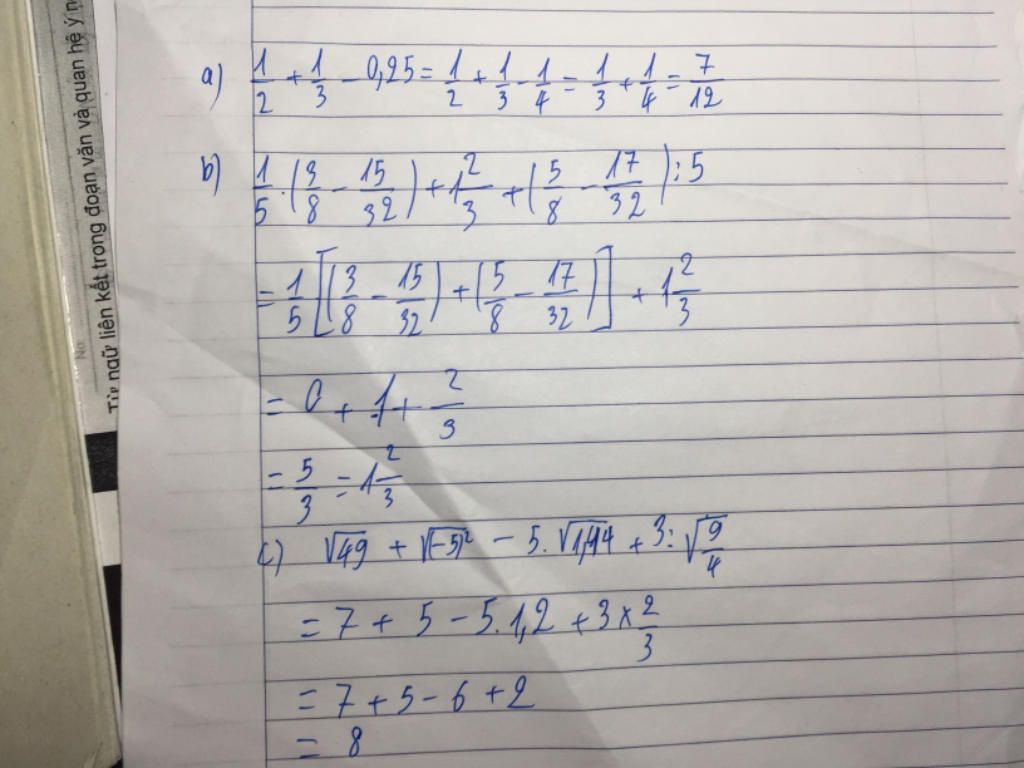 Từ ngữ liên kết trong đoạn văn và quan hệ ý n
No.
a) 1/2 + 1/3 - 0,25 = 1/2 + 1/3 - 1/4 = 1/3 + 1/4 = 7/12
b) 1/5 . (3/8 - 15/32) + 1 2/3 + (5/8 - 17/32) : 5
= 1/5 [(3/8 - 15/32) + (5/8 - 17/32)] + 1 2/3
= 0 + 1 + 2/3
= 5/3 = 1 2/3
c) √49 + √(-5)² - 5. √1,44 + 3 : √9/4
= 7 + 5 - 5.1,2 + 3 × 2/3
= 7 + 5 - 6 + 2
= 8